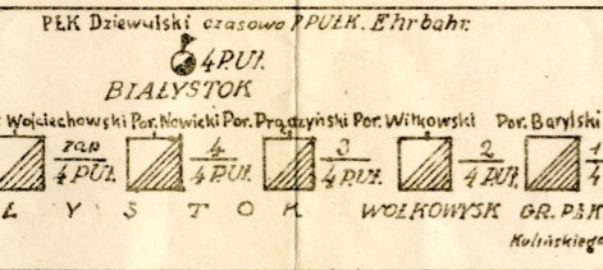 PŁK Dziewulski czasowo PPUŁK. Ehrbahr.
4 P.Uł.
BIAŁYSTOK
Wojciechowski Por. Nowicki Por. Prądzyński Por. Witkowski Por. Barylski
zap 4 3 2 1
4 P.Uł. 4 P.Uł. 4 P.Uł. 4 P.Uł. 4
Ł Y S T O K WOŁKOWYSK GR. PŁK
Kulińskiego